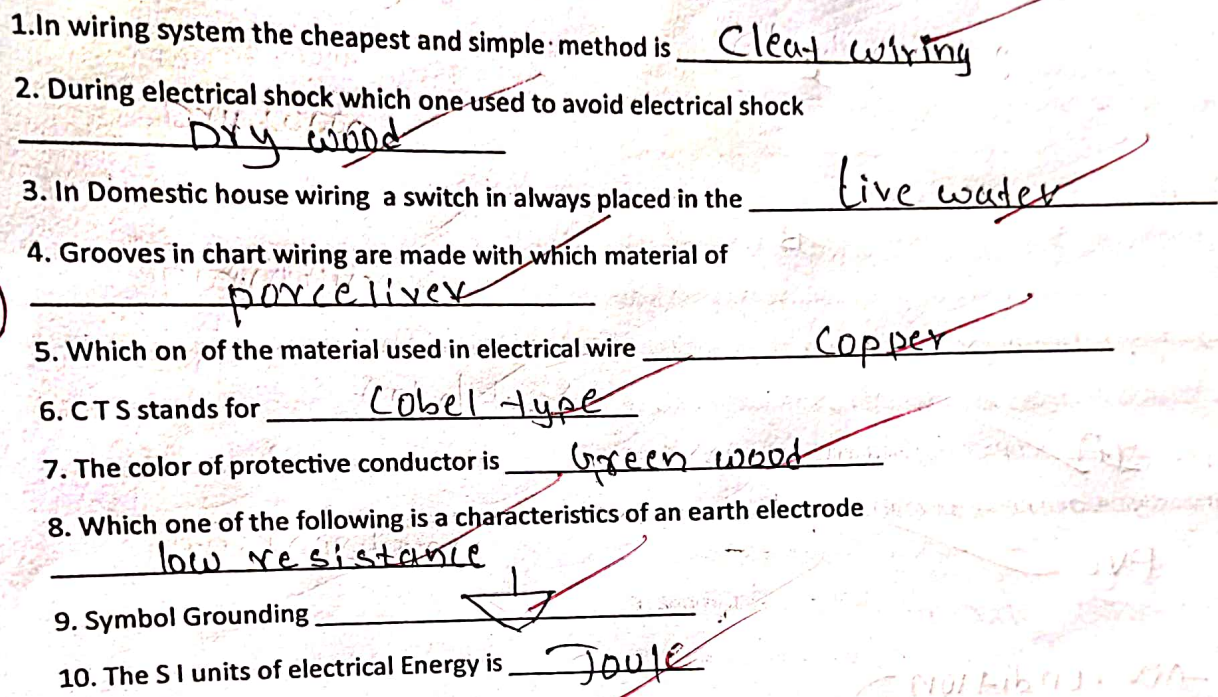 1.In wiring system the cheapest and simple method is Cleat wiring
2. During electrical shock which one used to avoid electrical shock
Dry wood
3. In Domestic house wiring a switch in always placed in the Live water
4. Grooves in chart wiring are made with which material of
porceliver
5. Which on of the material used in electrical wire Copper
6. C T S stands for Cobel type
7. The color of protective conductor is Green wood
8. Which one of the following is a characteristics of an earth electrode
low resistance
9. Symbol Grounding
10. The S I units of electrical Energy is Joule